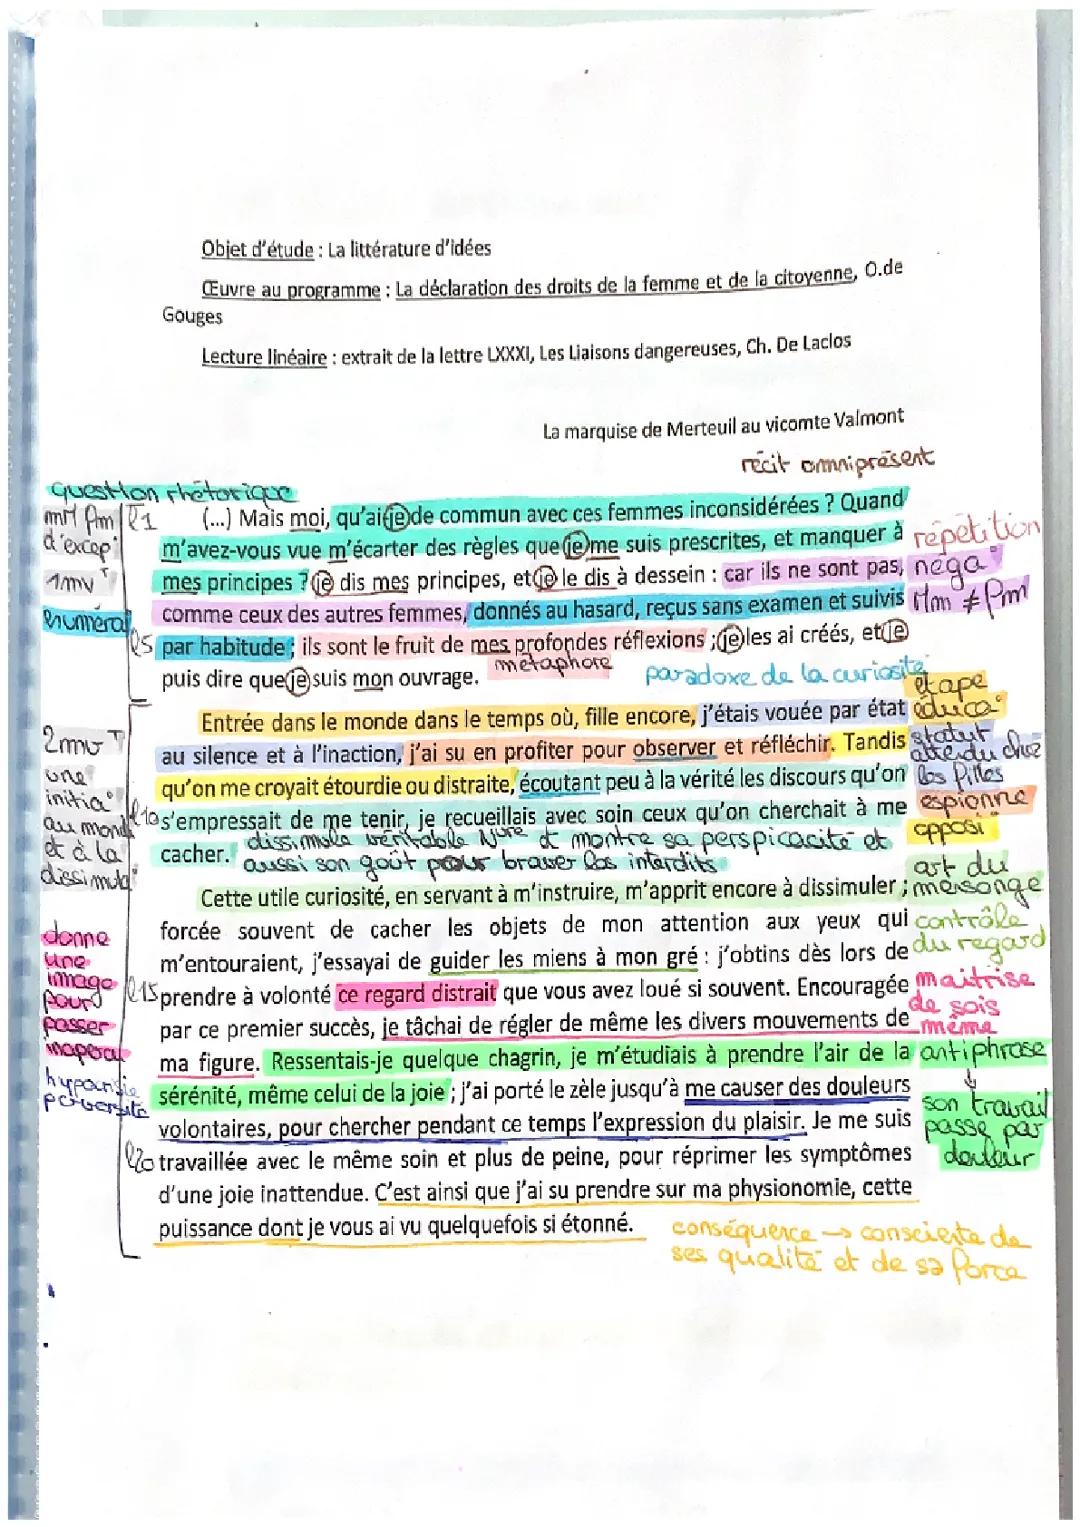 Objet d'étude : La littérature d'Idées
Œuvre au programme : La déclaration des droits de la femme et de la citoyenne, O.de
Gouges
Lecture linéaire : extrait de la lettre LXXXI, Les Liaisons dangereuses, Ch. De Laclos
La marquise de Merteuil au vicomte Valmont
récit omniprésent
question rhétorique
l1 (...) Mais moi, qu'ai-je de commun avec ces femmes inconsidérées ? Quand
m'avez-vous vue m'écarter des règles que je me suis prescrites, et manquer à
mes principes ? je dis mes principes, et je le dis à dessein : car ils ne sont pas,
comme ceux des autres femmes, donnés au hasard, reçus sans examen et suivis
l5 par habitude ; ils sont le fruit de mes profondes réflexions ; je les ai créés, et je
puis dire que je suis mon ouvrage.
d'excep°
1mvT
énuméra°
répétition
néga°
Mm ≠ fm
métaphore
paradoxe de la curiosité
Entrée dans le monde dans le temps où, fille encore, j'étais vouée par état
au silence et à l'inaction, j'ai su en profiter pour observer et réfléchir. Tandis
qu'on me croyait étourdie ou distraite, écoutant peu à la vérité les discours qu'on
l10 s'empressait de me tenir, je recueillais avec soin ceux qu'on cherchait à me
cacher.
dissimule véritable Nure et montre sa perspicacité et
aussi son goût pour braver les interdits
2mvT
une
initia°
au monde
et à la
dissimula°
étape
éduca°
statut
attendu chez
les filles
espionne
opposi°
Cette utile curiosité, en servant à m'instruire, m'apprit encore à dissimuler ;
forcée souvent de cacher les objets de mon attention aux yeux qui
m'entouraient, j'essayai de guider les miens à mon gré : j'obtins dès lors de
l15 prendre à volonté ce regard distrait que vous avez loué si souvent. Encouragée
par ce premier succès, je tâchai de régler de même les divers mouvements de
ma figure. Ressentais-je quelque chagrin, je m'étudiais à prendre l'air de la
sérénité, même celui de la joie ; j'ai porté le zèle jusqu'à me causer des douleurs
volontaires, pour chercher pendant ce temps l'expression du plaisir. Je me suis
l20 travaillée avec le même soin et plus de peine, pour réprimer les symptômes
d'une joie inattendue. C'est ainsi que j'ai su prendre sur ma physionomie, cette
puissance dont je vous ai vu quelquefois si étonné.
donne
une
image
pour
passer
perversité
art du
mesonge
contrôle
du regard
maitrise
de sois
même
antiphrase
↓
son travail
passe par
douleur
conséquence → consciente de
ses qualité et de sa force